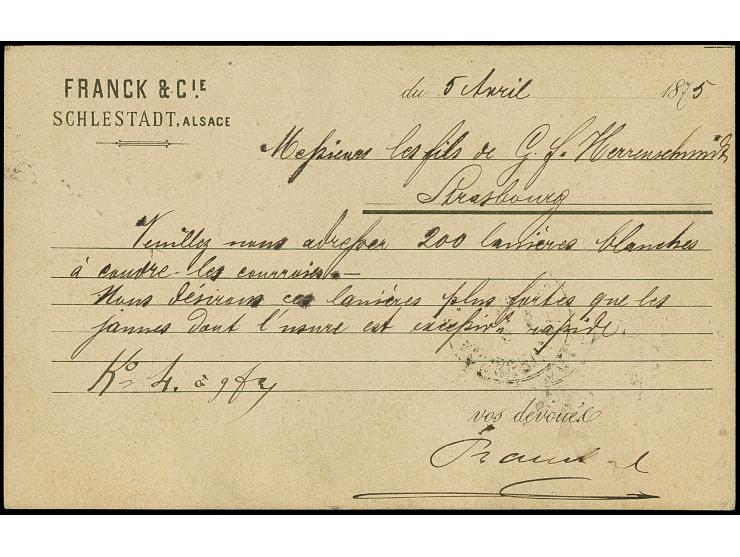 FRANCK & CIE.
SCHLESTADT, ALSACE
du 5 Avril 1875
Messieurs les fils de G. f. Herrenschmidt
Strasbourg
Veuillez nous adresser 200 lanières blanches
à coudre les courroies.—
Nous désirons ces lanières plus fortes que les
jaunes dont l'usure est excessivt rapide.
Ko 4. à
vos dévoués